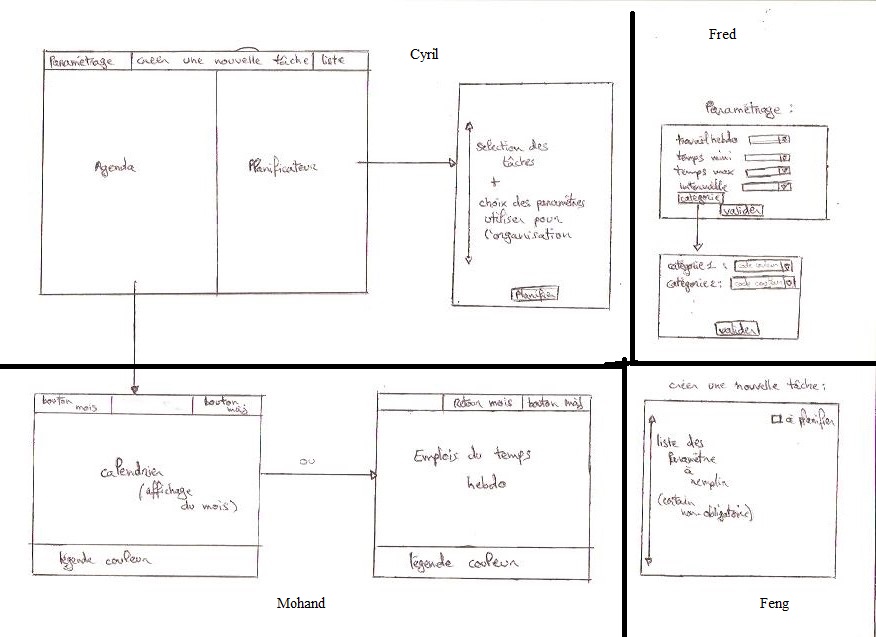 Cyril
Paramétrage
créer une nouvelle tâche
liste
Agenda
Planificateur
selection des
tâches
+
choix des paramètres
utiliser pour
l'organisation
Planifier
Fred
Paramétrage :
travail hebdo
temps mini
temps max
intervalle
catégorie
valider
catégorie 1 : code couleur
catégorie 2 : code couleur
valider
bouton
mois
bouton
màj
calendrier
(affichage
du mois)
légende couleur
ou
Retour mois
bouton màj
Emplois du temps
hebdo
légende couleur
Mohand
créer une nouvelle tâche :
à planifier
liste des
Paramètre
à
remplir
(certain
non-obligatoire)
Feng